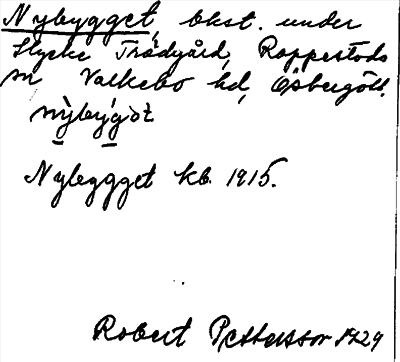 Nybygget, bkst. under
Slycke Trädgård, Rappestads
sn Valkebo hd, Östergötl.
nỳbýgɔt
Nybygget kb. 1915.
Robert Pettersson 1929